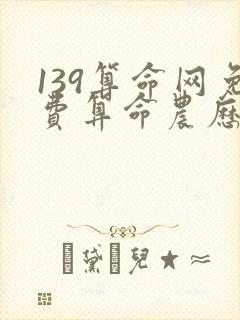 139算命网免
費算命農歷
黛兒★≈